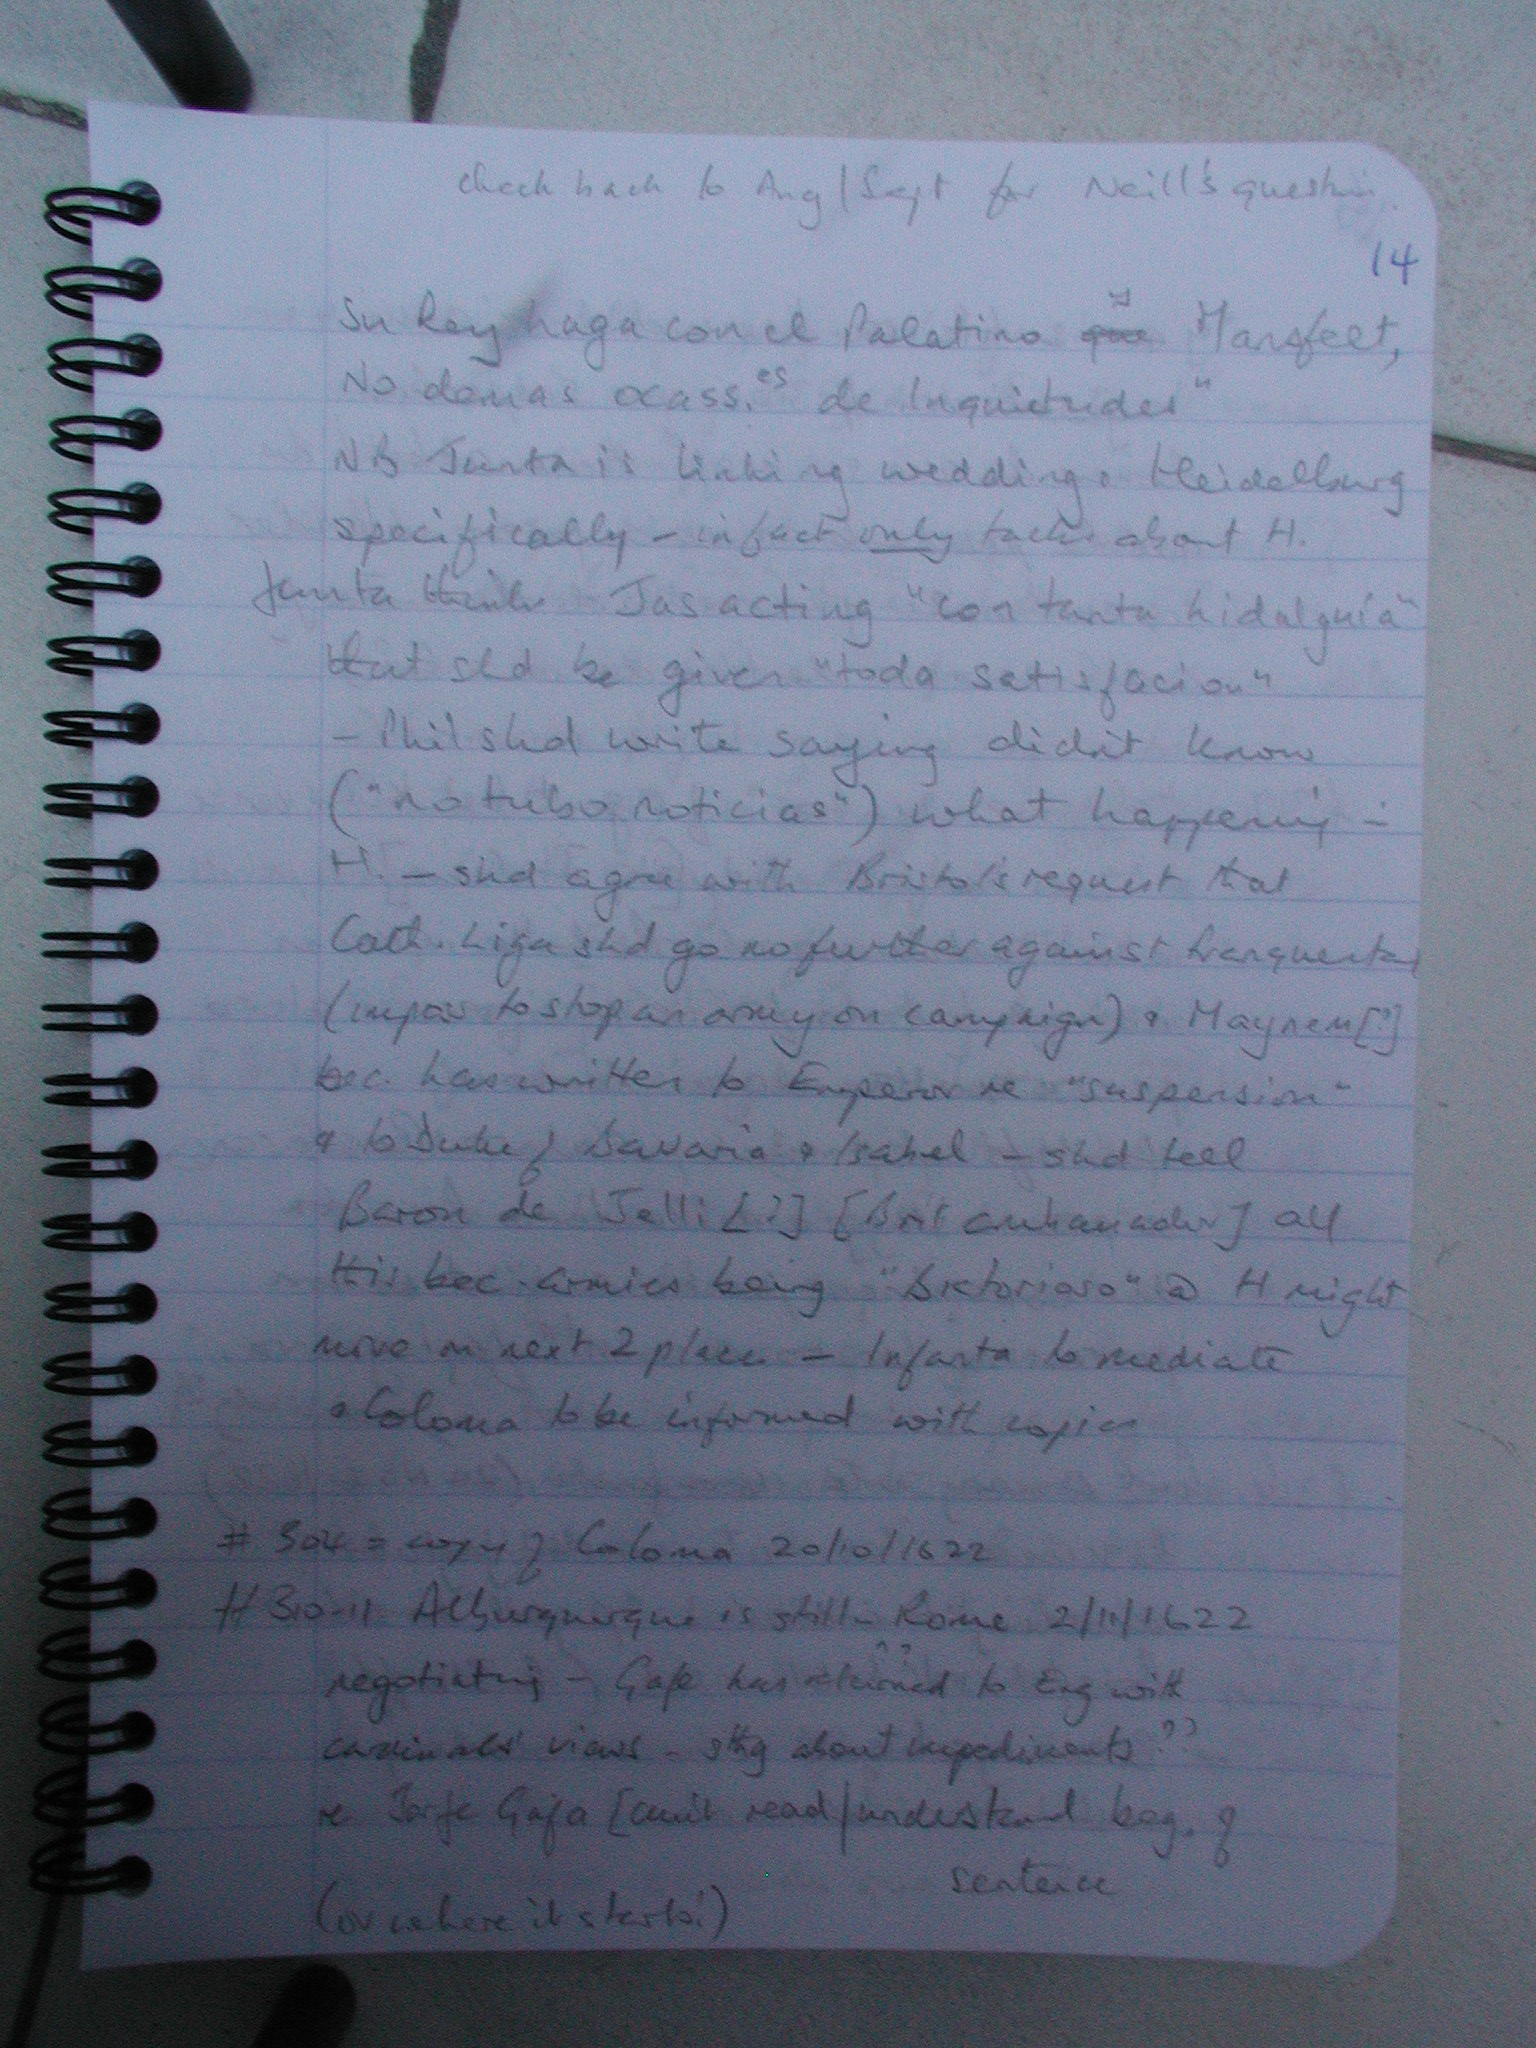 check back to Aug/Sept for Neill's question.
14
Su Rey haga con el Palatino y Mansfelt,
No demas ocass.es de Inquietudes"
NB Junta is linking wedding & Heidelburg
specifically – in fact only talks about H.
Junta thinks Jas acting "con tanta hidalguía"
that shd be given "toda satisfacion"
– Phil shd write saying didn't know
("no tubo noticias") what happening in
H. – shd agree with Bristol's request that
Cath. Liga shd go no further against Franquental
(imposs to stop an army on campaign) & Maynem[?]
bec. has written to Emperor re "suspension"
& to Duke of Bavaria & Isabel – shd tell
Baron de Telli [?] [Brit ambassador] all
this bec. armies being "Bictorioso" @ H might
move on next 2 places – Infanta to mediate
& Coloma to be informed with copies
# 304 = copy of Coloma 20/10/1622
# 310-11 Alburquerque is still in Rome 2/11/1622
negotiating – Gafe has returned?? to Eng with
cardinals' views – sthg about impediments??
re Jorje Gafa [can't read/understand beg. of
sentence
(or where it starts!)